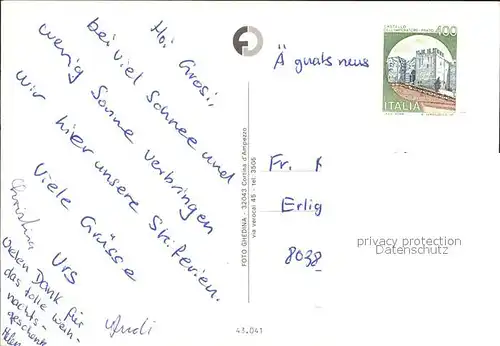 Hoi Grosi,
bei viel Schnee und
wenig Sonne verbringen
wir hier unsere Skiferien.
Viele Grüsse
Urs
Christina
Vielen Dank für
das tolle Weih-
nachts-
geschenk
Andi
FOTO GHEDINA - 32043 Cortina d'Ampezzo
via verocai 45 - tel. 3506
43.041
Ä guats neus
Fr.
Erlig
8038
CASTELLO
400
ITALIA
privacy protection
Datenschutz